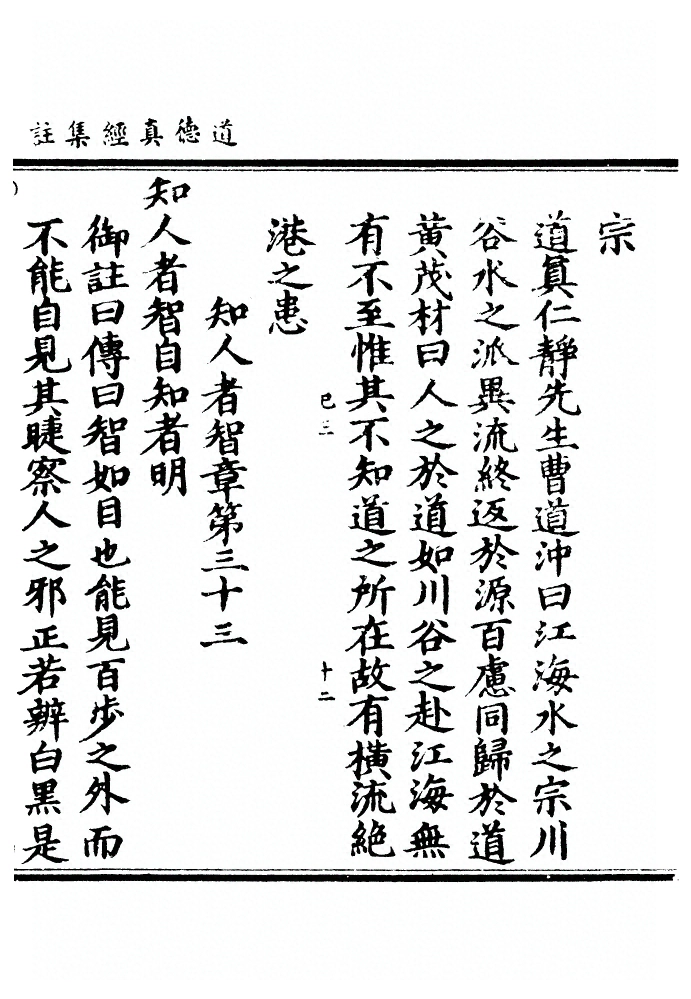 道德真經集註
宗
道真仁靜先生曹道沖曰江海水之宗川
谷水之派異流終返於源百慮同歸於道
黃茂材曰人之於道如川谷之赴江海無
有不至惟其不知道之所在故有橫流絶
已三
十二
港之患
知人者智章第三十三
知人者智自知者明
御註曰傳曰智如目也能見百步之外而
不能自見其睫察人之邪正若辨白黑是